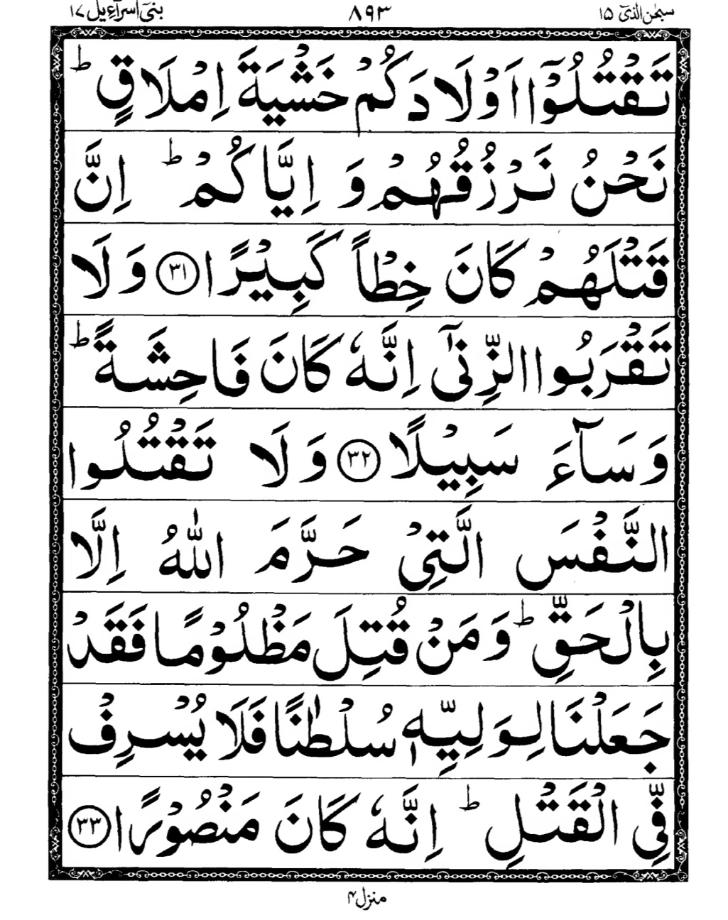 سبحٰن الذیٓ ۱۵ ۸۹۳ بنیٓ اسرآءیل ۱۷
تَقْتُلُوْۤا اَوْلَادَكُمْ خَشْیَةَ اِمْلَاقٍ ؕ
نَحْنُ نَرْزُقُهُمْ وَ اِیَّاكُمْ ؕ اِنَّ
قَتْلَهُمْ كَانَ خِطْاً كَبِیْرًا ﴿۳۱﴾ وَ لَا
تَقْرَبُوا الزِّنٰۤی اِنَّهٗ كَانَ فَاحِشَةً ؕ
وَ سَآءَ سَبِیْلًا ﴿۳۲﴾ وَ لَا تَقْتُلُوا
النَّفْسَ الَّتِیْ حَرَّمَ اللّٰهُ اِلَّا
بِالْحَقِّ ؕ وَ مَنْ قُتِلَ مَظْلُوْمًا فَقَدْ
جَعَلْنَا لِوَلِیِّهٖ سُلْطٰنًا فَلَا یُسْرِفْ
فِّی الْقَتْلِ ؕ اِنَّهٗ كَانَ مَنْصُوْرًا ﴿۳۳﴾
منزل ۴